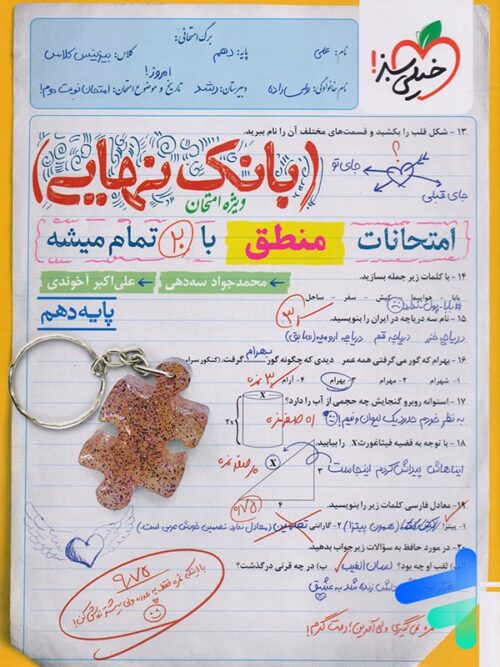 برگ امتحانی:
نام: علی
پایه: دهم
کلاس: بیزینس کلاس
امروز!
نام خانوادگی: ولی زاده
دبیرستان: رشد
تاریخ و موضوع امتحان: امتحان نوبت دوم!
خیلی سبز!
۱۳- شکل قلب را بکشید و قسمت‌های مختلف آن را نام ببرید.
؟
جای تو
جای قبلی
(بانک نهایی)
ویژه امتحان
امتحانات منطق با ۲۰ تمام میشه
محمدجواد سه‌دهی
علی‌اکبر آخوندی
پایه دهم
۱۴- با کلمات زیر جمله بسازید.
بابا - هواپیما - کیش - سفر - ساحل
#بابا_پول_نداره
۱۵- نام سه دریاچه در ایران را بنویسید.
دریاچه خزر دریاچه قم دریاچه ارومیه (سابق)
۱۶- بهرام که گور می‌گرفتی همه عمر دیدی که چگونه گور بهرام گرفت. (کنکور سراسری
۱- شهرام ۲- مهرام ۳- بهرام ۴- آرام
۱۷- استوانه روبرو گنجایش چه حجمی از آب را دارد؟
۱۸- با توجه به قضیه فیثاغورث X را بیابید.
ایناهاش پیداش کردم اینجاست
X
۳
۴
۱۹- معادل فارسی کلمات زیر را بنویسید.
۱- پیتزا (همون پیتزا) ۲- گارانتی تضمین (معادل ندارد. تضمین خودش عربی است.)
۲۰- در مورد حافظ به سؤالات زیر جواب بدهید.
لقب او چه بود؟ لسان الغیب ب) در چه قرنی درگذشت؟
دلش زنده شد به عشق
۹/۷۵